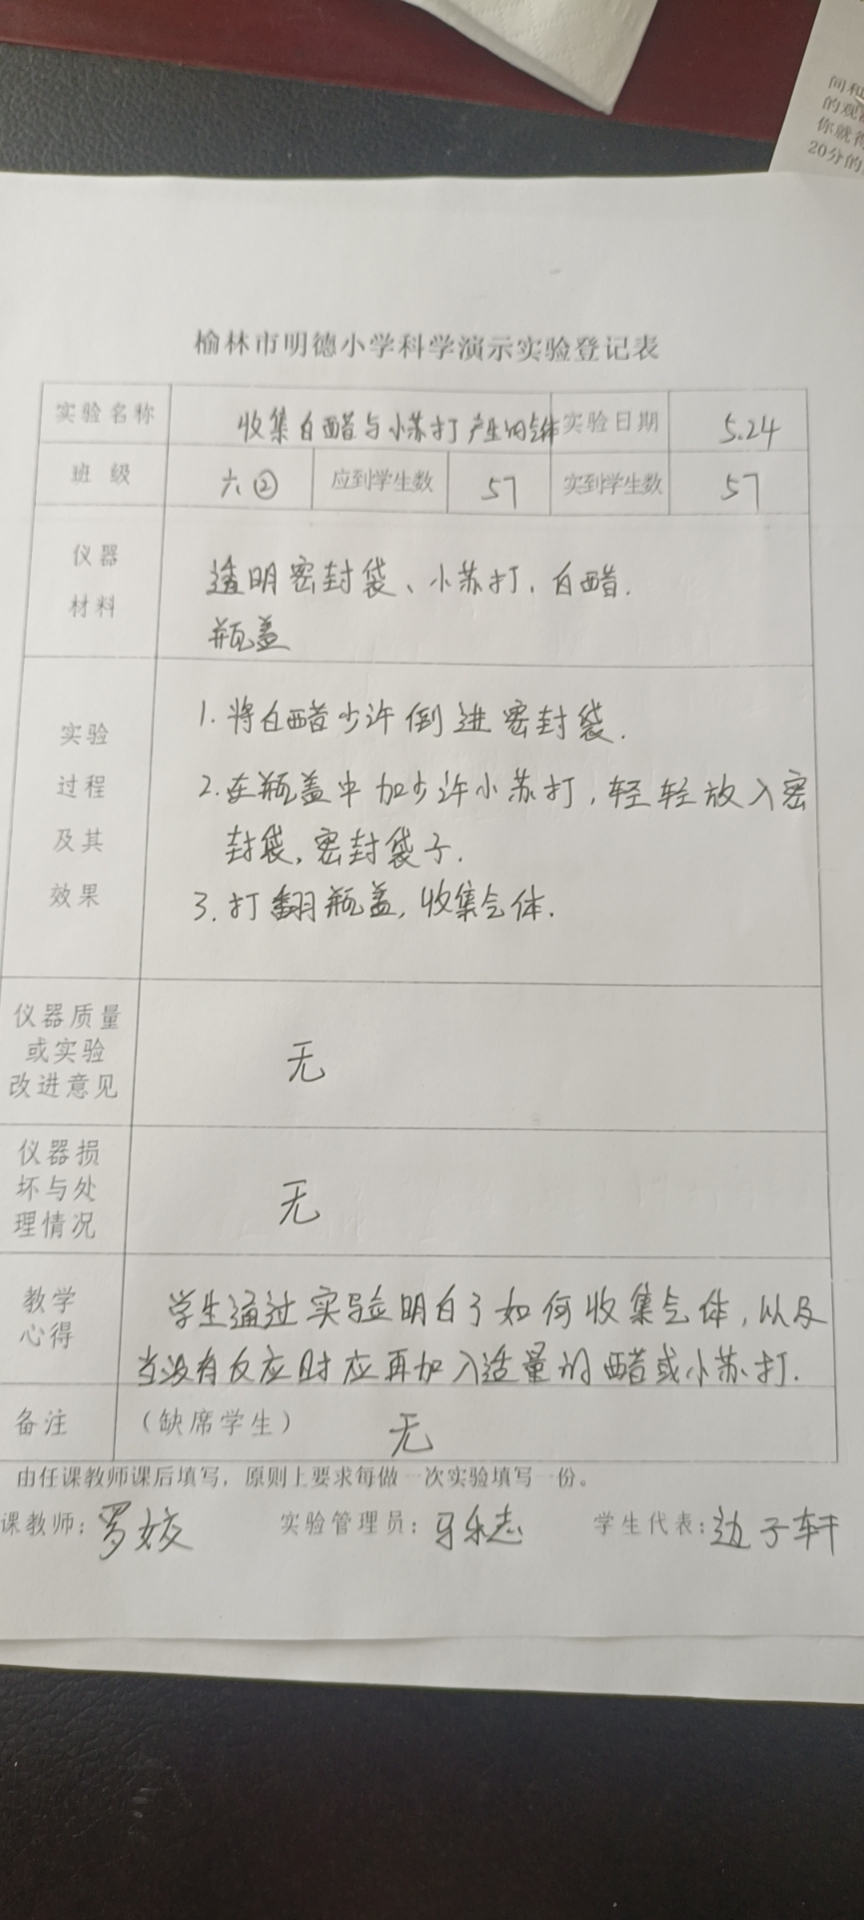 间和
的观
你就得
20分的
榆林市明德小学科学演示实验登记表
实验名称 收集白醋与小苏打产生的气体 实验日期 5.24
班 级 六② 应到学生数 57 实到学生数 57
仪器
材料
透明密封袋、小苏打、白醋.
瓶盖
实验
过程
及其
效果
1.将白醋少许倒进密封袋.
2.在瓶盖中加少许小苏打,轻轻放入密
封袋,密封袋子.
3.打翻瓶盖,收集气体.
仪器质量
或实验
改进意见
无
仪器损
坏与处
理情况
无
教学
心得
学生通过实验明白了如何收集气体,以及
当没有反应时应再加入适量的醋或小苏打.
备注 (缺席学生) 无
由任课教师课后填写，原则上要求每做一次实验填写一份。
课教师: 罗姣 实验管理员: 马乐志 学生代表: 边子轩